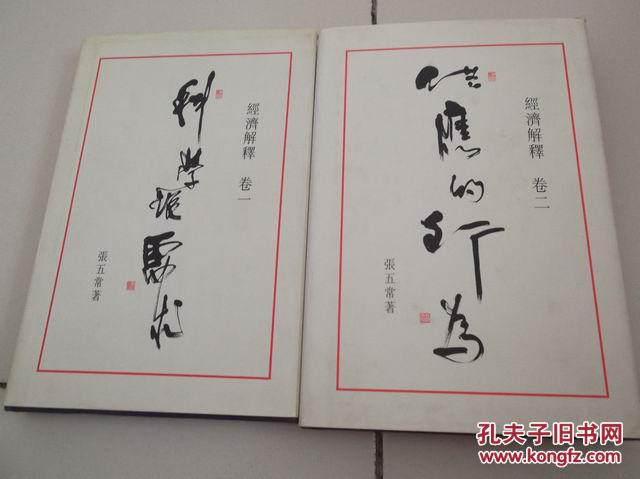 經濟解釋 卷一
科學說需求
張五常著
經濟解釋 卷二
供應的行為
張五常著
孔夫子旧书网
www.kongfz.com